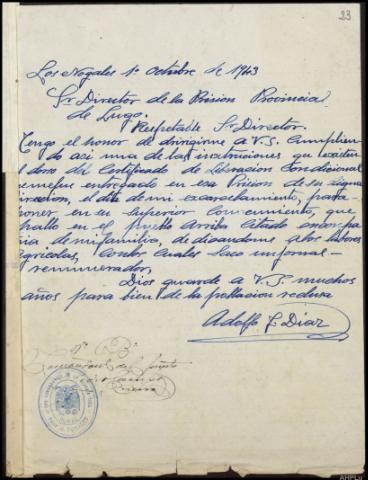 23
Los Nogales 1º octubre de 1943
Sr Director de la Prision Provincial
de Lugo.
Respetable Sr Director.
Tengo el honor de dirigirme a V.S. Cumplien
do asi una de las instruciones que existen
dorso del Certificado de Liberacion Condicional
entregado en esa Prision de su digna
el dia de mi excarcelamiento, para
poner en su Superior Conocimiento, que
hallo en el Pueblo Arriba Citado en compa
ñia de mi familia, dedicandome a las labores
agricolas, Con las Cuales Saco un jornal
remunerador,
Dios guarde a V.S. muchos
años para bien de la poblacion reclusa
Adolfo F. Diaz
Vº Bº
Comandante del
AHPLu